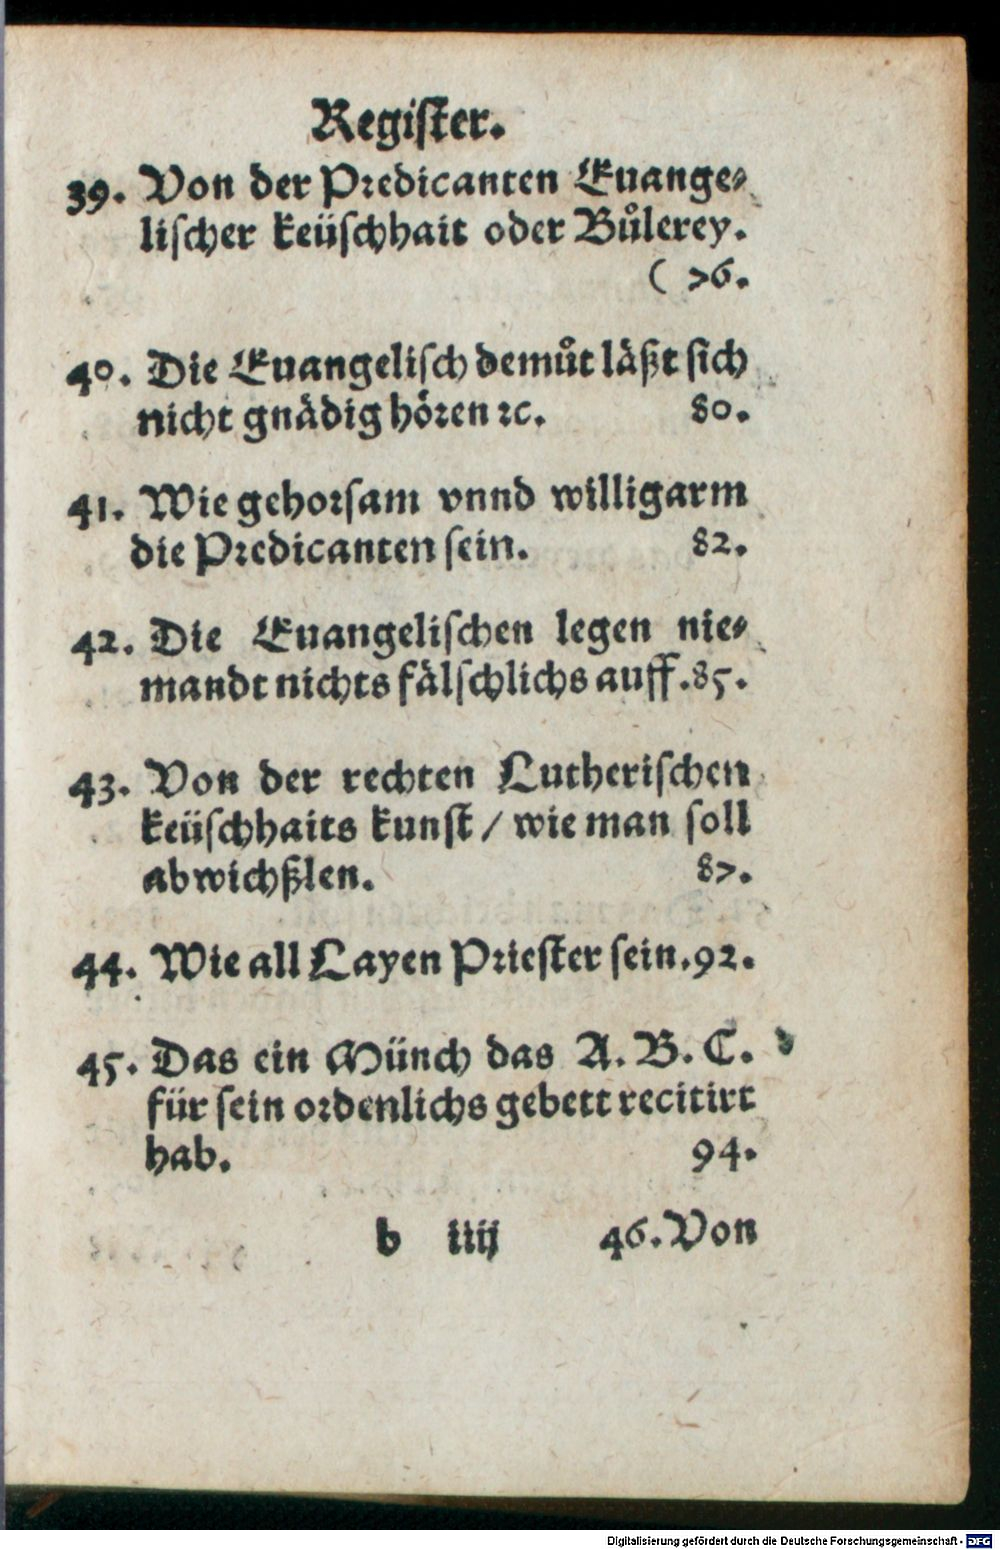 Register.
39. Von der Predicanten Euange⸗
lischer keüschhait oder Bůlerey.
( 76.
40. Die Euangelisch demůt läßt sich
nicht gnädig hören ꝛc. 80.
41. Wie gehorsam vnnd willigarm
die Predicanten sein. 82.
42. Die Euangelischen legen nie⸗
mandt nichts fälschlichs auff. 85.
43. Von der rechten Lutherischen
keüschhaits kunst / wie man soll
abwichßlen. 87.
44. Wie all Layen Priester sein. 92.
45. Das ein Münch das A. B. C.
für sein ordenlichs gebett recitirt
hab. 94.
b iiij 46. Von
Digitalisierung gefördert durch die Deutsche Forschungsgemeinschaft - DFG